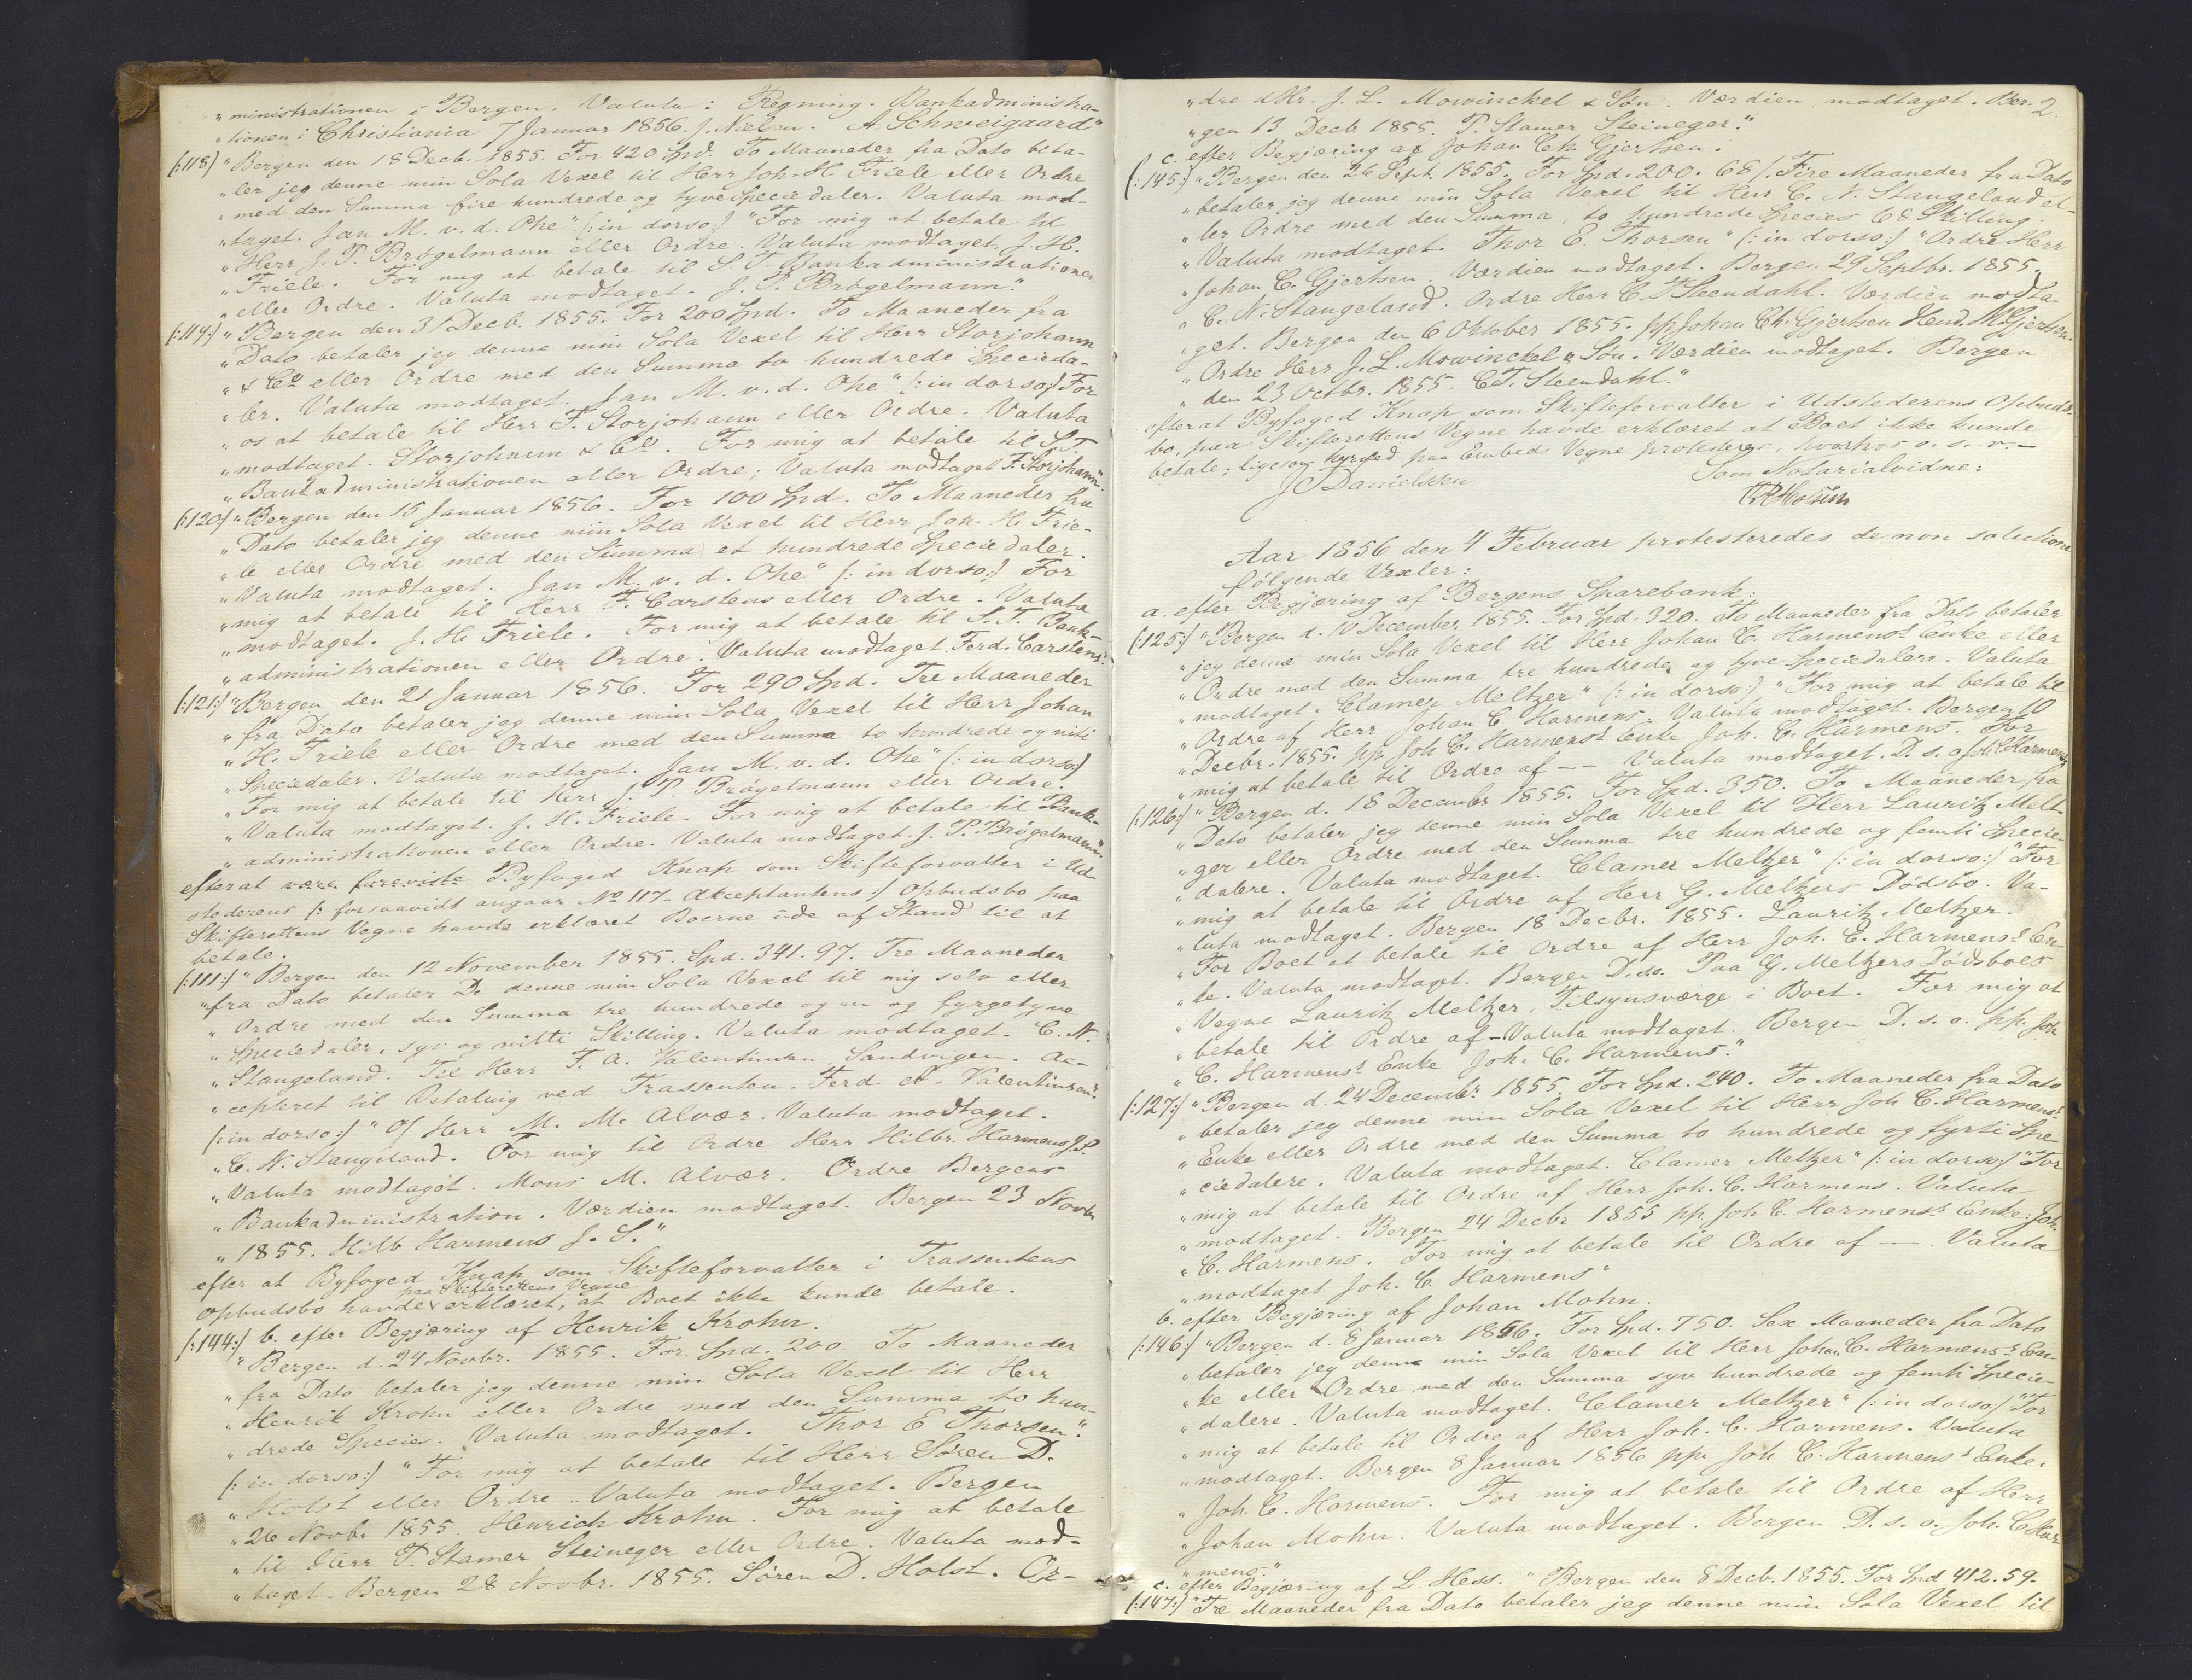 „ministrationen i Bergen. Valuta: Regning. Bankadministra-
„tionen i Christiania 7 Januar 1856. J. Nielsen. A. Schweigaard"
(:118) „Bergen den 18 Decb. 1855. For 420 Spd. To Maaneder fra Dato beta-
„ler jeg denne min Sola Vexel til Herr Joh. H. Friele eller Ordre
„med den Summa fire hundrede og tyve Speciedaler. Valuta mod-
„taget. Jan M. v. d. Ohe" (: in dorso:) "For mig at betale til
„Herr J. P. Brögelmann eller Ordre. Valuta modtaget. J. H.
„Friele. For mig at betale til S. T. Bankadministrationen
„eller Ordre. Valuta modtaget. J. P. Brögelmann."
(:119:) „Bergen den 31 Decb. 1855. For 200 Spd. To Maaneder fra
„Dato betaler jeg denne min Sola Vexel til Herr Storjohann
„& Co eller Ordre med den Summa to hundrede Specieda-
„ler. Valuta modtaget. Jan M. v. d. Ohe" (: in dorso:) For
„os at betale til Herr F. Storjohann eller Ordre. Valuta
„modtaget. Storjohann & Co. For mig at betale til S. T.
„Bankadministrationen eller Ordre; Valuta modtaget F. Storjohann".
(:120:) „Bergen den 15 Januar 1856. For 100 Spd. To Maaneder fra
„Dato betaler jeg denne min Sola Vexel til Herr Joh. H. Frie-
„le eller Ordre med den Summa et hundrede Speciedaler.
„Valuta modtaget. Jan M. v. d. Ohe" (: in dorso:) For
„mig at betale til Herr F. Carstens eller Ordre. Valuta
„modtaget. J. H. Friele. For mig at betale til S. T. Bank-
„administrationen eller Ordre. Valuta modtaget. Ferd. Carstens".
(:121:) "Bergen den 21 Januar 1856. For 290 Spd. Tre Maaneder
„fra Dato betaler jeg denne min Sola Vexel til Herr Johan
„H. Friele eller Ordre med den Summa to hundrede og nitti
„Speciedaler. Valuta modtaget. Jan M. v. d. Ohe" (: in dorso:)
„For mig at betale til Herr J. P. Brögelmann eller Ordre.
„Valuta modtaget. J. H. Friele. For mig at betale til Bank-
„administrationen eller Ordre. Valuta modtaget J. P. Brögelmann".
efterat Byfoged Knap som Skifteforvalter i Ud-
stederens (: forsaavidt angaar No 117. Akceptantens:) Opbudsbo paa
Skifterettens Vegne havde erklæret Boerne ude af Stand til at
betale.
(:111:) "Bergen den 12 November 1855. Spd. 341.97. Tre Maaneder
„fra Dato betaler De denne min Sola Vexel til mig selv eller
„Ordre med den Summa tre hundrede og en og fyrgetyve
„Speciedaler, syv og nitti Skilling. Valuta modtaget. C. N.
„Stangeland. Til Herr F. A. Valentinsen Sandvigen. Ac-
„cepteret til Betaling ved Trassenten. Ferd. A. Valentinsen".
(: in dorso:) " O/ Herr M. M. Alvær. Valuta modtaget.
„C. N. Stangeland. For mig til Ordre Herr Hilbr. Harmens J. S.
„Valuta modtaget. Mons M. Alvær. Ordre Bergens
„Bankadministration. Værdien modtaget. Bergen 23 Novbr
„1855. Hilb Harmens J. S."
efter at Byfoged Knap som Skifteforvalter i Trassentens
paa Skifterettens Vegne
Opbudsbo havde erklæret, at Boet ikke kunde betale.
(:144:) b. efter Begjæring af Henrik Krohn.
"Bergen d. 24 Novbr. 1855. For Spd. 200. To Maaneder
„fra Dato betaler jeg denne min Sola Vexel til Herr
„Henrik Krohn eller Ordre med den Summa to hun-
„drede Species. Valuta modtaget. Thor E Thorsen".
(: in dorso:) "For mig at betale til Herr Sören D.
„Holst eller Ordre. Valuta modtaget. Bergen
„26 Novbr 1855. Henrich Krohn. For mig at betale
„til Herr T. Stamer Steineger eller Ordre. Valuta mod-
„taget. Bergen 28 Novbr. 1855. Sören D. Holst. Or-
„dre dHr. J. L. Mowinckel & Søn. Værdien modtaget. Ber- 2.
„gen 13 Decb 1855. T. Stamer Steineger."
c. efter Begjæring af Johan Ch. Gjertsen.
(:145:) "Bergen den 26 Sept. 1855. For Spd. 200. 68 /. Fire Maaneder fra Dato
„betaler jeg denne min Sola Vexel til Herr C. N. Stangeland el-
„ler Ordre med den Summa, to hundrede Species 68 Skilling.
„Valuta modtaget. Thor E. Thorsen" (: in dorso:) "Ordre Herr
„Johan C. Gjertsen. Værdien modtaget. Bergen 29 Septbr. 1855.
„C. N. Stangeland. Ordre Herr C. T Steendahl. Værdien modta-
„get. Bergen den 6 Oktober 1855. pp Johan Ch. Gjertsen Hend. M. Gjertsen.
„Ordre Herr J. L. Mowinckel & Søn. Værdien modtaget. Bergen
„den 23 Octbr. 1855. C. T. Steendahl."
efterat Byfoged Knap som Skifteforvalter i Udstederens Opbuds-
bo, paa Skifterettens Vegne havde erklæret at Boet ikke kunde
betale; ligesom hermed paa Embeds Vegne protesteres, hvorhos o. s. v. –
J C Danielsen Som Notarialvidne:
Aar 1856 den 4 Februar protesteredes de non solutione
følgende Vexler:
a. efter Begjæring af Bergens Sparebank:
(:125:) "Bergen d. 10 December 1855. For Spd. 320. To Maaneder fra Dato betaler
„jeg denne min Sola Vexel til Herr Johan C. Harmens's Enke eller
„Ordre med den Summa tre hundrede og tyve Speciedalere. Valuta
„modtaget. Clamer Meltzer" (: in dorso:) "For mig at betale til
„Ordre af Herr Johan C Harmens. Valuta modtaget. Bergen 10
„Decbr. 1855. pp. Joh C. Harmens's Enke Joh. C. Harmens. For
„mig at betale til Ordre af –– Valuta modtaget. D. s. o Joh C Harmens."
(:126:) "Bergen d. 18 Decembr 1855. For Spd. 350. To Maaneder fra
„Dato betaler jeg denne min Sola Vexel til Herr Lauritz Melt-
„zer eller Ordre med den Summa tre hundrede og femti Specie-
„dalere. Valuta modtaget. Clamer Meltzer" (: in dorso:) "For
„mig at betale til Ordre af Herr G. Meltzers Dödsbo. Va-
„luta modtaget. Bergen 18 Decbr. 1855. Lauritz Meltzer.
„For Boet at betale til Ordre af Herr Joh. C. Harmens's En-
„ke. Valuta modtaget. Bergen D. so. Paa G. Meltzers Dödsboes
„Vegne Lauritz Meltzer, Tilsynsværge i Boet. For mig at
„betale til Ordre af – Valuta modtaget. Bergen D. s. o. pp. Joh
„C. Harmens's Enke Joh. C. Harmens."
(:127:) "Bergen d. 24 Decembr 1855. For Spd. 240. To Maaneder fra Dato
„betaler jeg denne min Sola Vexel til Herr Joh C. Harmens's
„Enke eller Ordre med den Summa to hundrede og fyrti Spe-
„ciedalere. Valuta modtaget. Clamer Meltzer" (: in dorso:) "For
„mig at betale til Ordre af Herr Joh. C. Harmens. Valuta
„modtaget. Bergen 24 Decbr 1855 pp Joh C. Harmens's Enke: Joh.
„C. Harmens. For mig at betale til Ordre af –– . Valuta
„modtaget Joh. C. Harmens"
b. efter Begjæring af Johan Mohn.
(:146:) "Bergen d. 8 Januar 1856. For Spd. 750. Sex Maaneder fra Dato
„betaler jeg denne min Sola Vexel til Herr Johan C. Harmens's En-
„ke eller Ordre med den Summa syv hundrede og femti Specie-
„dalere. Valuta modtaget. Clamer Meltzer" (: in dorso:) "For
„mig at betale til Ordre af Herr Joh. C. Harmens. Valuta
„modtaget. Bergen 8 Januar 1856 pp. Joh C. Harmens's Enke.
„Joh. C. Harmens. For mig at betale til Ordre af Herr
„Johan Mohn. Valuta modtaget. Bergen D. s. o. Joh. C. Har
„mens."
c. efter Begjæring af L. Hess. "Bergen den 8 Decb. 1855. For Spd 412.59.
(:147:) "Tre Maaneder fra Dato betaler jeg denne min Sola Vexel til